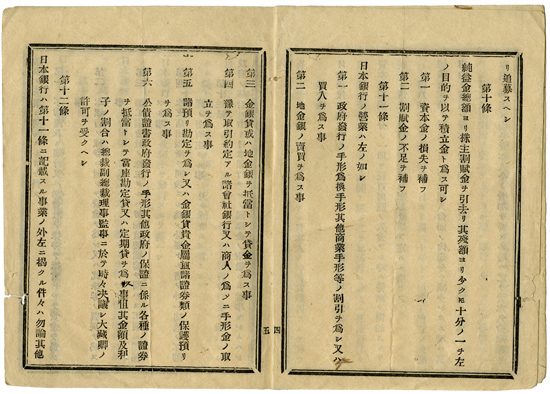 リ追募スヘシ
第十條
純益金總額ヨリ株主割賦金ヲ引去リ其殘額ヨリ少クモ十分ノ一ヲ左
ノ目的ヲ以テ積立金ト爲ス可シ
第一 資本金ノ損失ヲ補フ
第二 割賦金ノ不足ヲ補フ
第十一條
日本銀行ノ營業ハ左ノ如シ
第一 政府發行ノ手形爲換手形其他商業手形等ノ割引ヲ爲シ又ハ
買入ヲ爲ス事
第二 地金銀ノ賣買ヲ爲ス事
四
五
第三 金銀貨或ハ地金銀ヲ抵當トシテ貸金ヲ爲ス事
第四 豫テ取引約定アル諸會社銀行又ハ商人ノ爲メニ手形金ノ取
立ヲ爲ス事
第五 諸預リ勘定ヲ爲シ又ハ金銀貨貴金屬並諸證券類ノ保護預リ
ヲ爲ス事
第六 公債證書政府發行ノ手形其他政府ノ保證ニ係ル各種ノ證券
ヲ抵當トシテ當座勘定貸又ハ定期貸ヲ爲ス事但其金額及利
子ノ割合ハ總裁副總裁理事監事ニ於テ時々決議シ大藏卿ノ
許可ヲ受クヘシ
第十二條
日本銀行ハ第十一條ニ記載スル事業ノ外左ニ揭クル件々ハ勿論其他